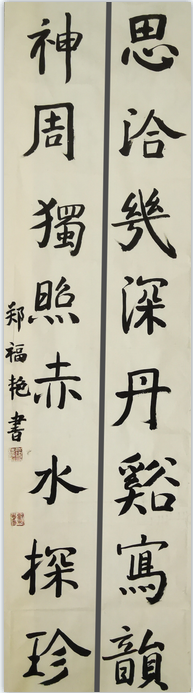 思洽幾深丹谿寫韻
神周獨照赤水探珍
郑福艳書